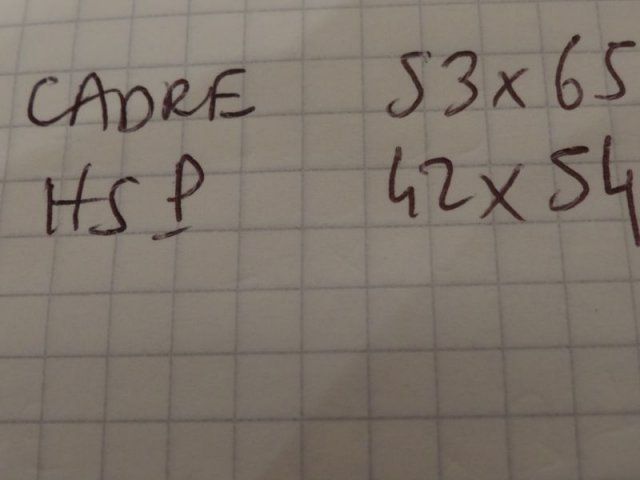 CADRE 53x65
HSP 42x54